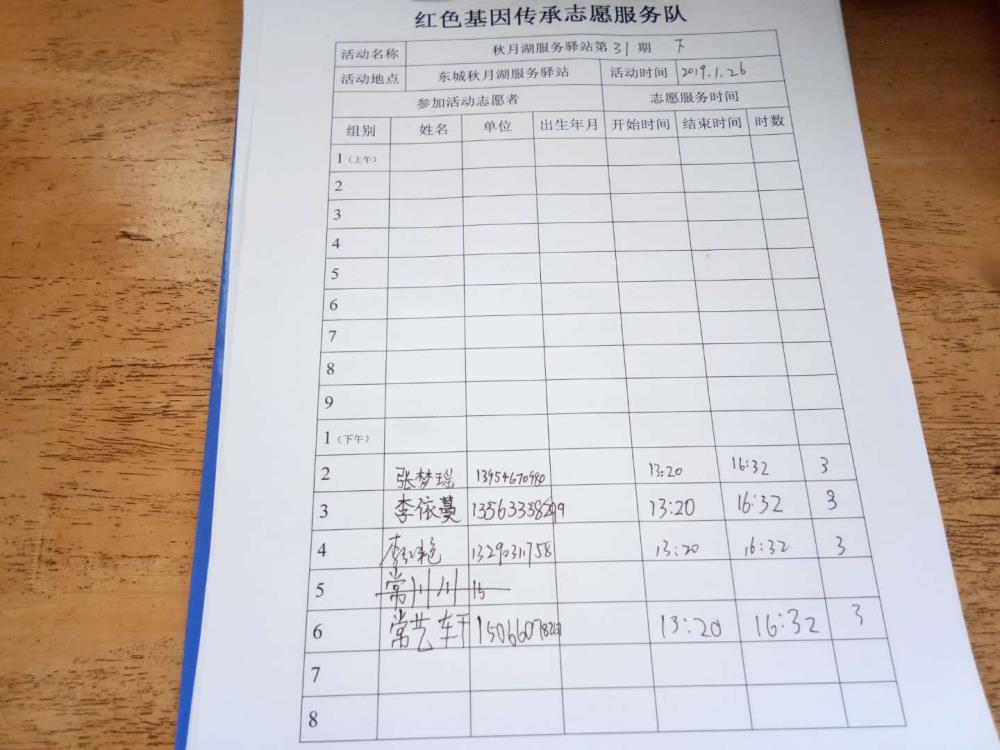 红色基因传承志愿服务队
活动名称 秋月湖服务驿站第31期 下
活动地点 东城秋月湖服务驿站 活动时间 2019.1.26
参加活动志愿者 志愿服务时间
组别 姓名 单位 出生年月 开始时间 结束时间 时数
1(上午)
2
3
4
5
6
7
8
9
1(下午)
2 张梦瑶 13954670980 13:20 16:32 3
3 李依蔓 13:20 16:32 3
4 13290311758 13:20 16:32 3
5 常 15
6 常艺轩 13:20 16:32 3
7
8